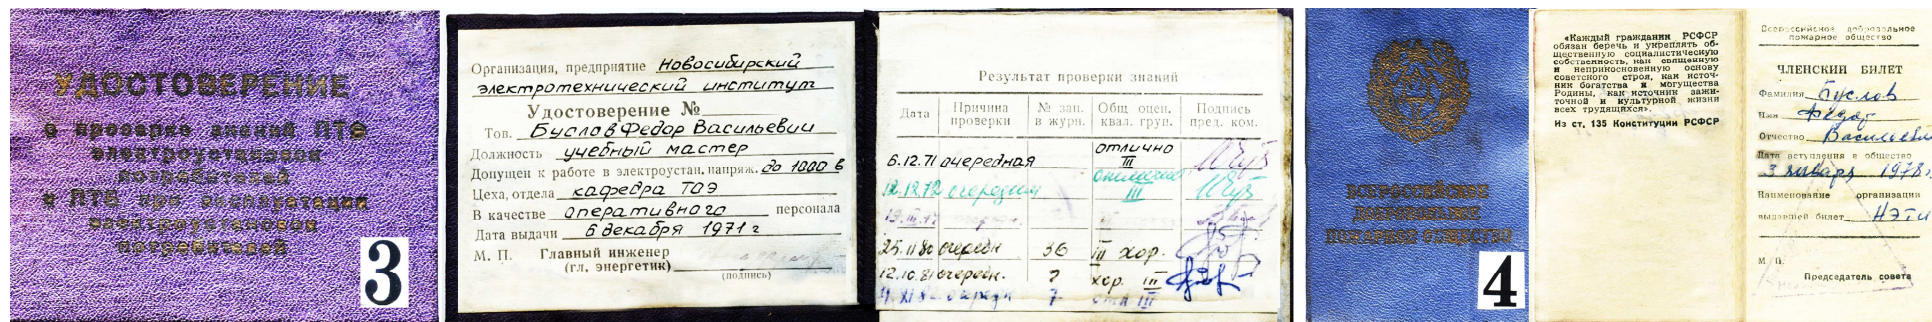 УДОСТОВЕРЕНИЕ
о проверке знаний ПТЭ
электроустановок
потребителей
и ПТБ при эксплуатации
электроустановок
потребителей
3
Организация, предприятие Новосибирский
электротехнический институт
Удостоверение №
Тов. Буслов Федор Васильевич
Должность учебный мастер
Допущен к работе в электроустан. напряж. до 1000 в
Цеха, отдела кафедра ТОЭ
В качестве оперативного персонала
Дата выдачи 6 декабря 1971 г
М. П. Главный инженер
(гл. энергетик)
(подпись)
Результат проверки знаний
Дата Причина проверки № зап. в журн. Общ. оцен. квал. груп. Подпись пред. ком.
6.12.71 очередная отлично III
12.12.72 очередная отлично III
25.11.80 очередн 36 III хор.
12.10.81 очередн. 7 хор. III
очередн 7 отл III
ВСЕРОССИЙСКОЕ
ДОБРОВОЛЬНОЕ
ПОЖАРНОЕ ОБЩЕСТВО
4
«Каждый гражданин РСФСР
обязан беречь и укреплять об-
щественную социалистическую
собственность, как священную
и неприкосновенную основу
советского строя, как источ-
ник богатства и могущества
Родины, как источник зажи-
точной и культурной жизни
всех трудящихся».
Из ст. 135 Конституции РСФСР
Всероссийское добровольное
пожарное общество
ЧЛЕНСКИЙ БИЛЕТ
Фамилия Буслов
Имя Федор
Отчество Васильевич
Дата вступления в общество
3 января 1978 г.
Наименование организации
выдавшей билет НЭТИ
М. П.
Председатель совета